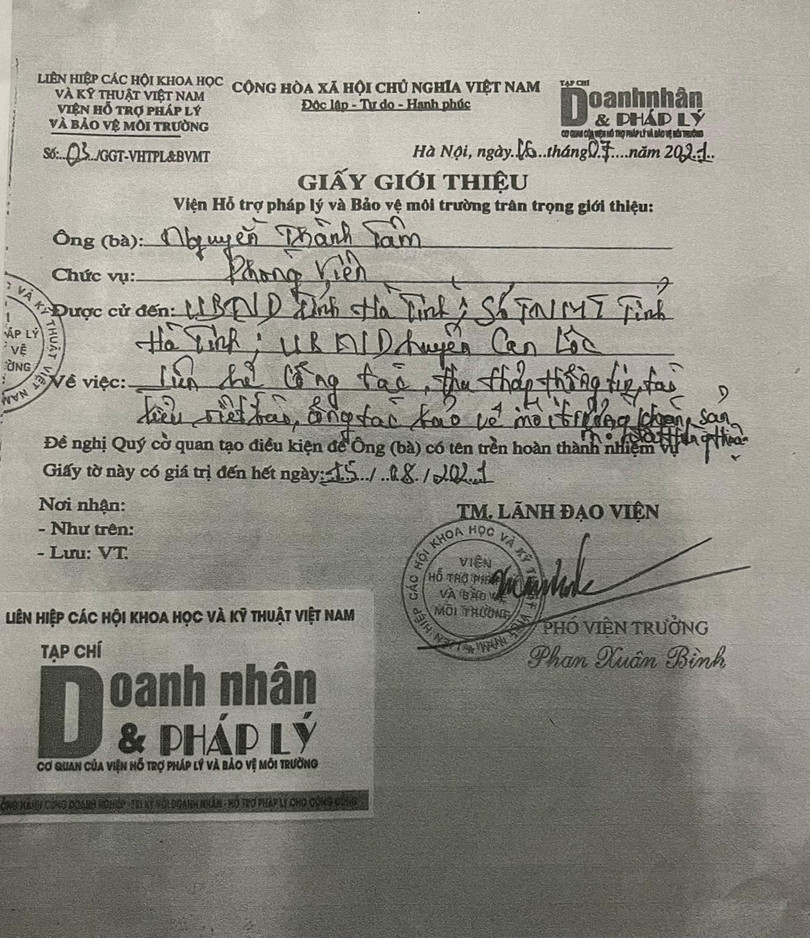 LIÊN HIỆP CÁC HỘI KHOA HỌC
VÀ KỸ THUẬT VIỆT NAM
VIỆN HỖ TRỢ PHÁP LÝ
VÀ BẢO VỆ MÔI TRƯỜNG
Số:..03../GGT-VHTPL&BVMT
CỘNG HÒA XÃ HỘI CHỦ NGHĨA VIỆT NAM
Độc lập - Tự do - Hạnh phúc
TẠP CHÍ
Doanhnhân
& PHÁP LÝ
CƠ QUAN CỦA VIỆN HỖ TRỢ PHÁP LÝ VÀ BẢO VỆ MÔI TRƯỜNG
Hà Nội, ngày..16...tháng07....năm 2021..
GIẤY GIỚI THIỆU
Viện Hỗ trợ pháp lý và Bảo vệ môi trường trân trọng giới thiệu:
Ông (bà): Nguyễn Thành Tâm
Chức vụ: Phóng Viên
Được cử đến: UBND Tỉnh Hà Tĩnh; Sở TNMT Tỉnh
Hà Tĩnh; UBND huyện Can Lộc
Về việc: Liên hệ Công tác, thu thập thông tin, tài
liệu viết bài, công tác bảo vệ môi trường, khoáng sản
Đề nghị Quý cơ quan tạo điều kiện để Ông (bà) có tên trên hoàn thành nhiệm vụ
Giấy tờ này có giá trị đến hết ngày: 15../..08./.2021
Nơi nhận:
- Như trên:
- Lưu: VT.
TM. LÃNH ĐẠO VIỆN
CÁC HỘI KHOA HỌC VÀ KỸ
VIỆN
HỖ TRỢ PHÁP
VÀ BẢO VỆ
MÔI TRƯỜNG
PHÓ VIỆN TRƯỞNG
Phan Xuân Bình
LIÊN HIỆP CÁC HỘI KHOA HỌC VÀ KỸ THUẬT VIỆT NAM
TẠP CHÍ
Doanh nhân
& PHÁP LÝ
CƠ QUAN CỦA VIỆN HỖ TRỢ PHÁP LÝ VÀ BẢO VỆ MÔI TRƯỜNG
HÀNH CÙNG DOANH NGHIỆP - TRI KỶ VỚI DOANH NHÂN - HỖ TRỢ PHÁP LÝ CHO CỘNG ĐỒNG